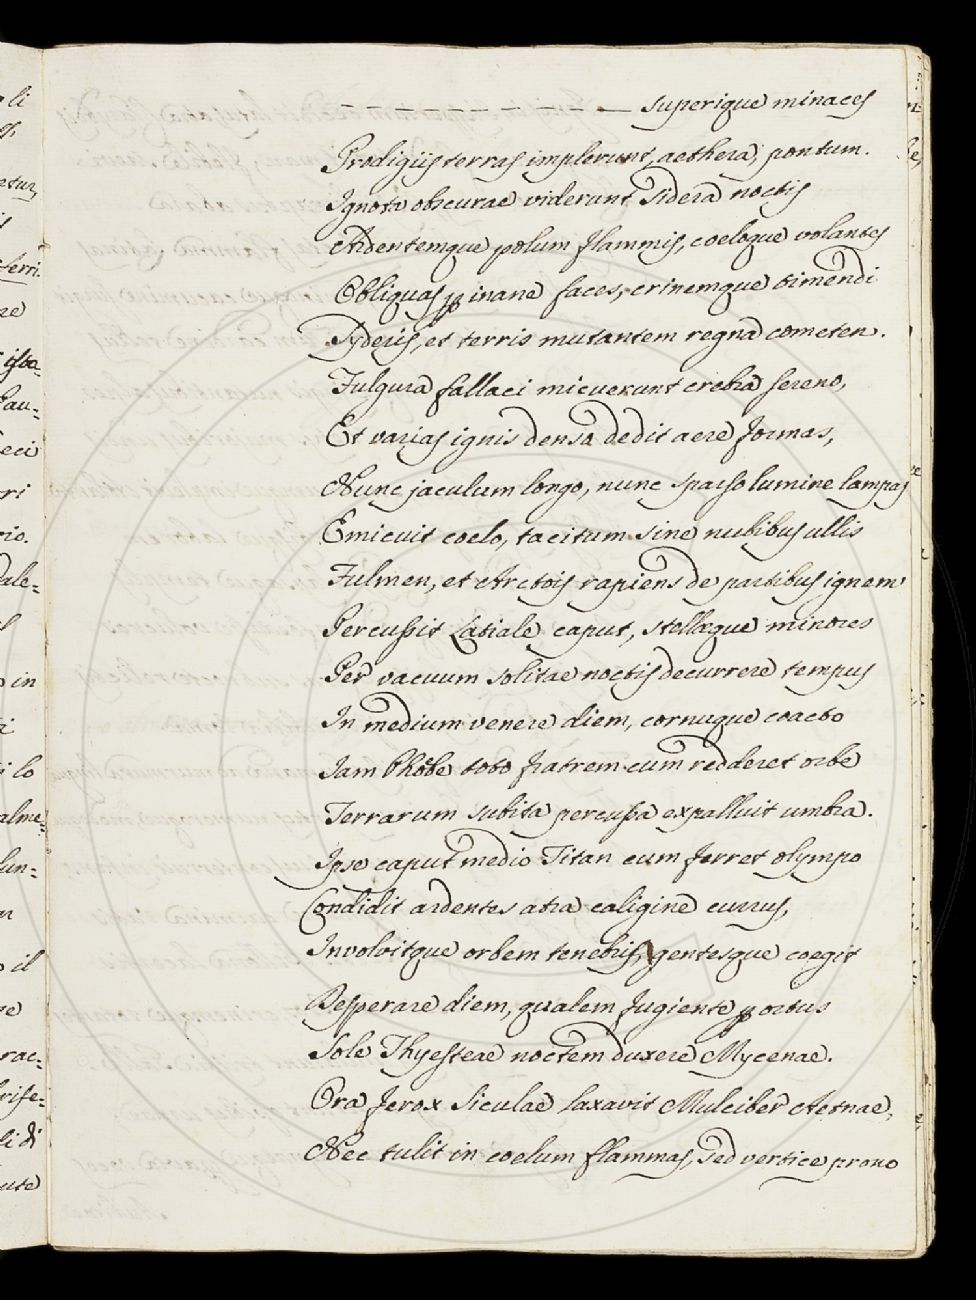 li
etur,
ferri.
re
isto-
eau-
eci
ri
rio.
dale-
o in
i lo
alme-
lun-
o il
re
rac-
rife-
li di
ute
– – – – – – – – superique minaces
Prodigiis terras implerunt, aethera, pontum.
Ignota obscurae viderunt sidera noctis
Ardentemque polum flammis, coeloque volantes
Obliquas p inane faces, crinemque timendi
Syderis, et terris mutantem regna cometen.
Fulgura fallaci micuerunt crebra sereno,
Et varias ignis denso dedit aere formas,
Nunc jaculum longo, nunc sparso lumine lampas
Emicuit coelo, tacitum sine nubibus ullis
Fulmen, et Arctois rapiens de partibus ignem
Percussit Latiale caput, stellæque minores
Per vacuum solitae noctis decurrere tempus
In medium venere diem, cornuque coacto
Iam Phœbe toto fratrem cum redderet orbe
Terrarum subita percussa expalluit umbra.
Ipse caput medio Titan cum ferret olympo
Condidit ardentes atra caligine currus,
Involvitque orbem tenebris, gentesque coegit
Desperare diem, qualem fugiente p ortus
Sole Thyesteae noctem duxere Mycenae.
Ora ferox Siculae laxavit Mulciber Aetnae,
Nec tulit in coelum flammas, sed vertice prono